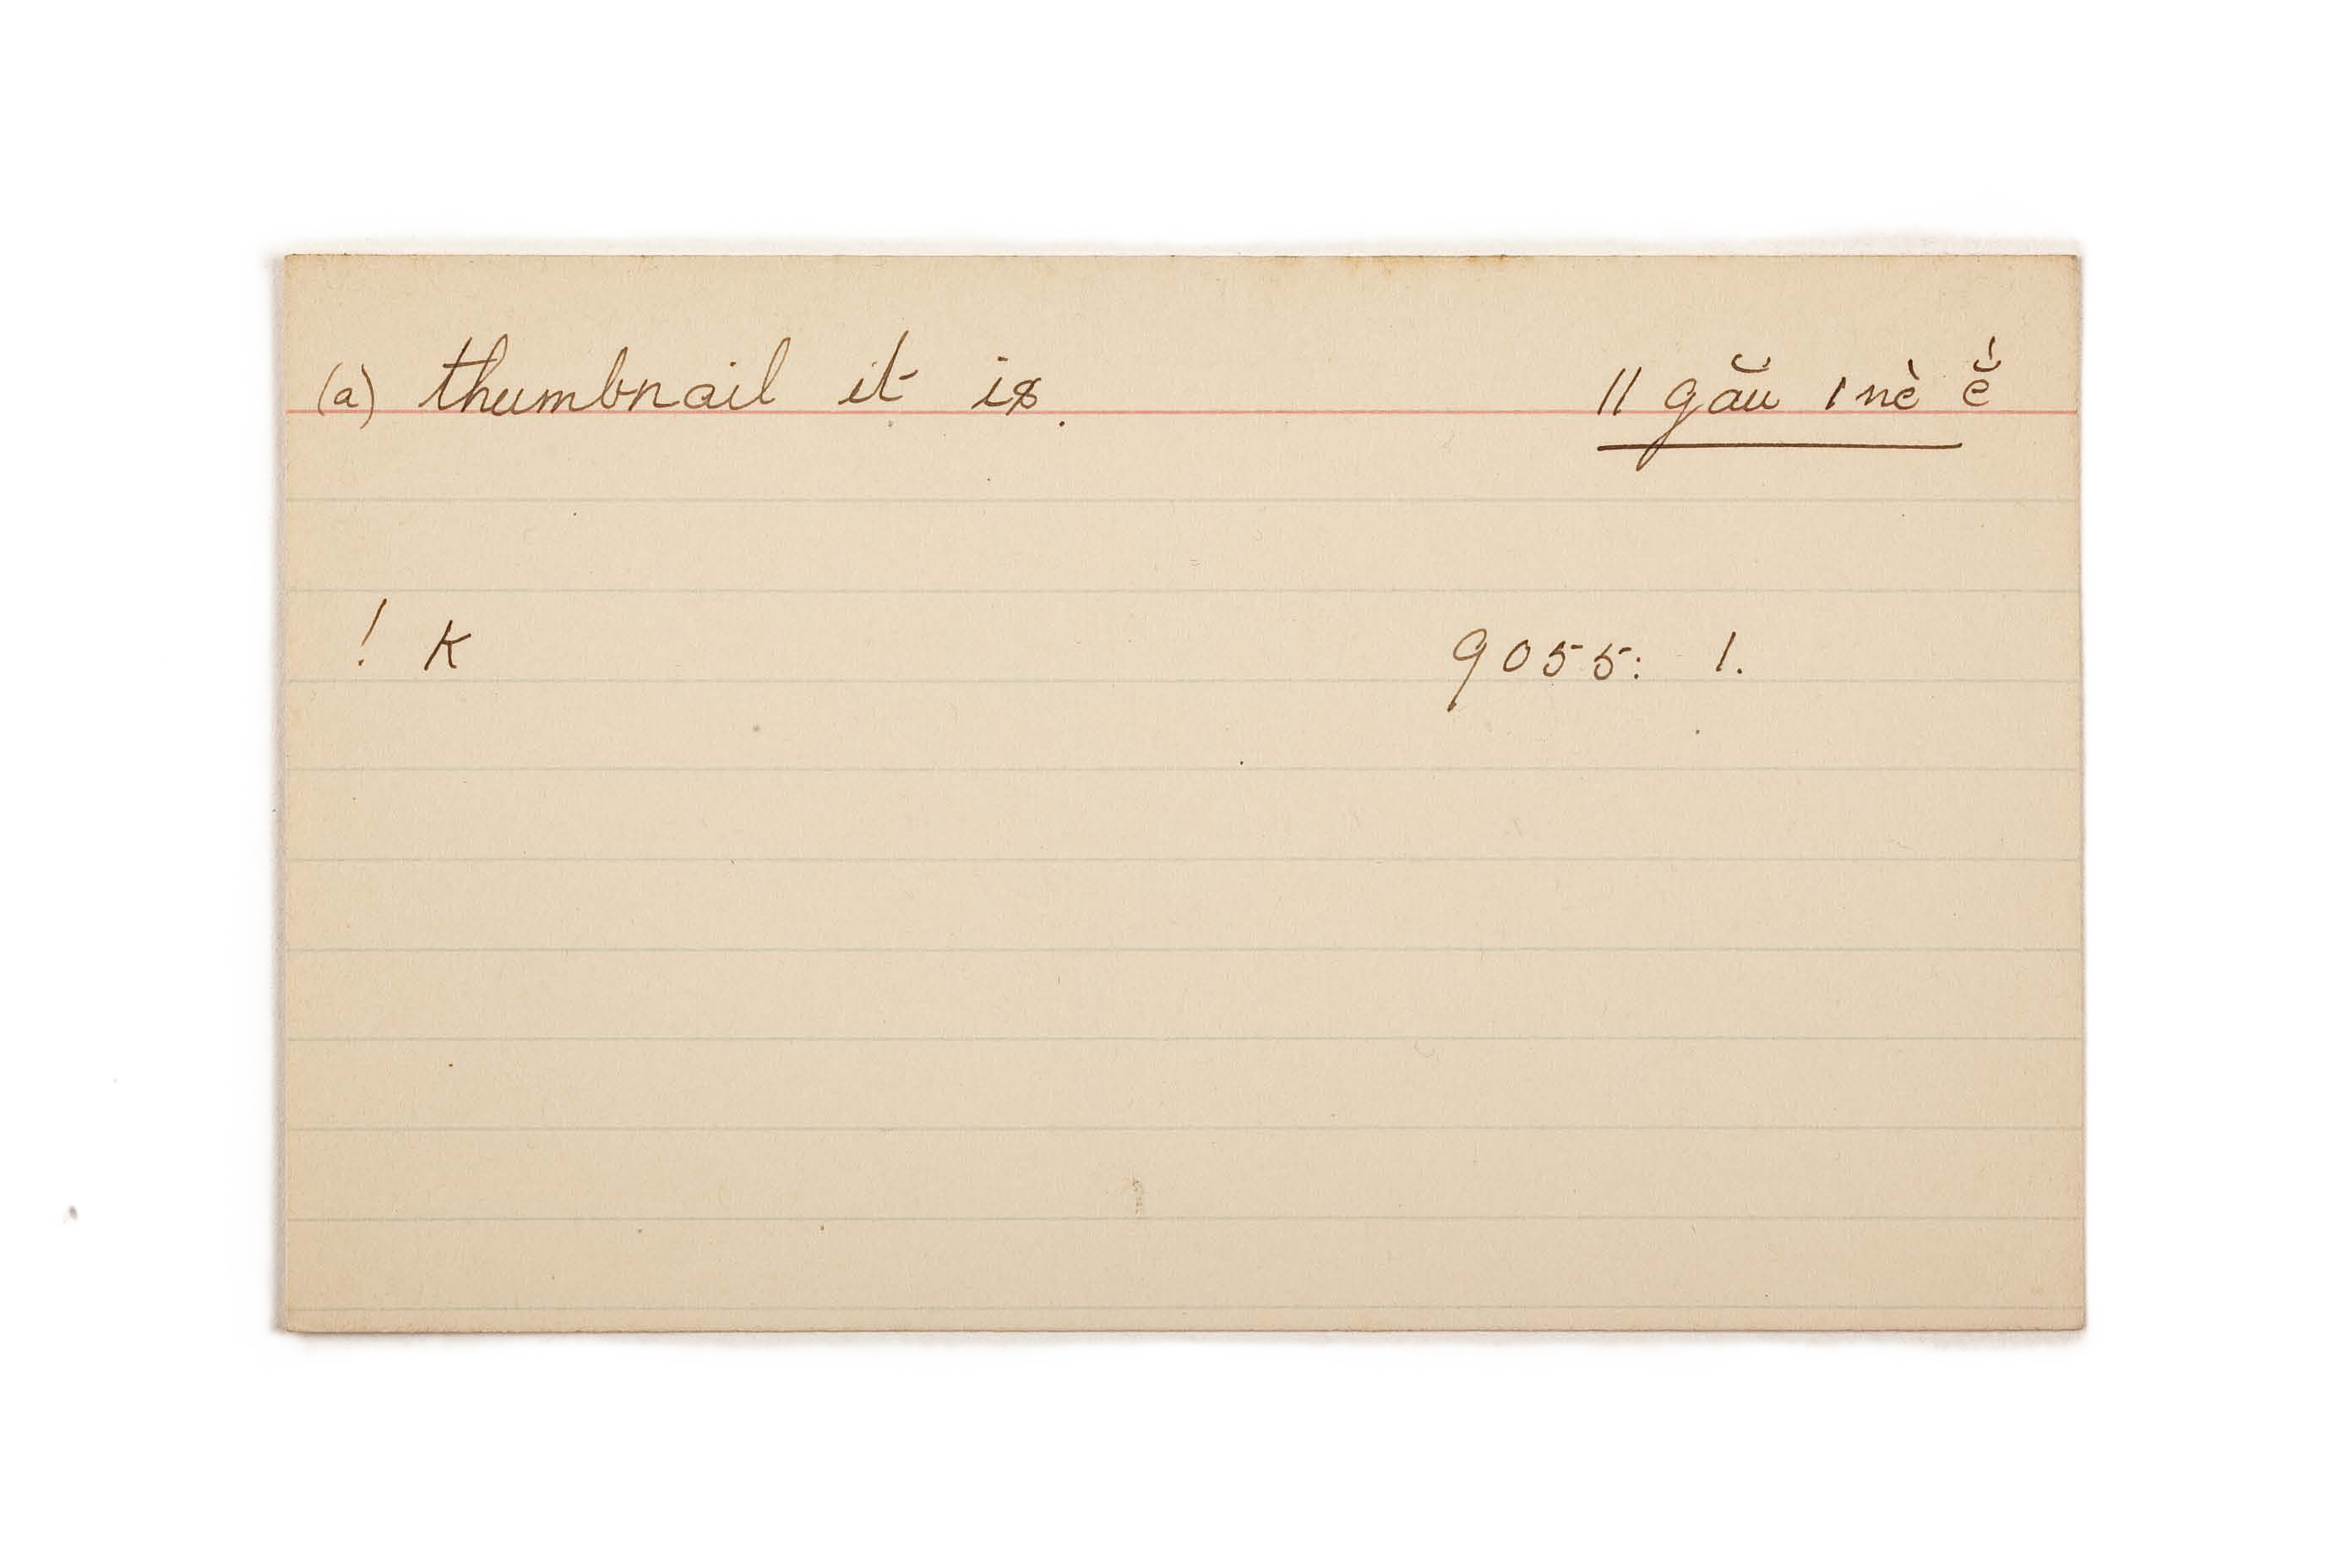 (a) thumbnail it is. ǁ gău ǀ nè ĕ́
! K 9055: 1.